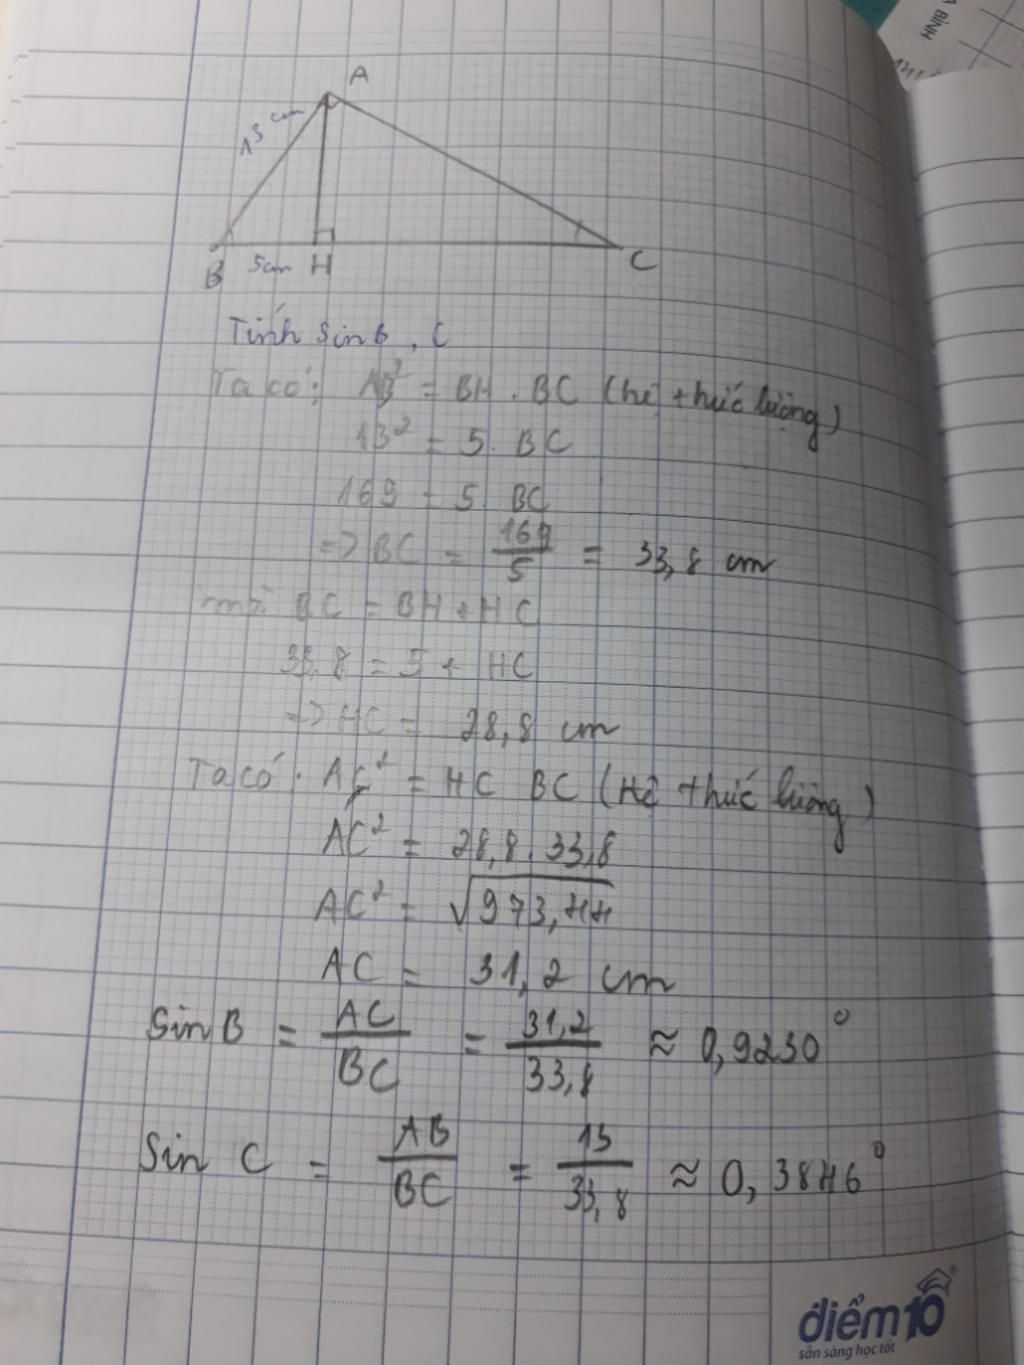 A BÌNH
A
13 cm
B 5cm H C
Tính sin B, C
Ta có: AB² = BH . BC (hệ thức lượng)
13² = 5. BC
169 = 5 BC
=> BC = 169/5 = 33,8 cm
mà: BC = BH + HC
33,8 = 5 + HC
=> HC = 28,8 cm
Ta có: AC² = HC BC (Hệ thức lượng)
AC² = 28,8 . 33,8
AC² = √973,44
AC = 31,2 cm
Sin B = AC/BC = 31,2/33,8 ≈ 0,9230°
Sin C = AB/BC = 13/33,8 ≈ 0,3846°
điểm10
sẵn sàng học tốt